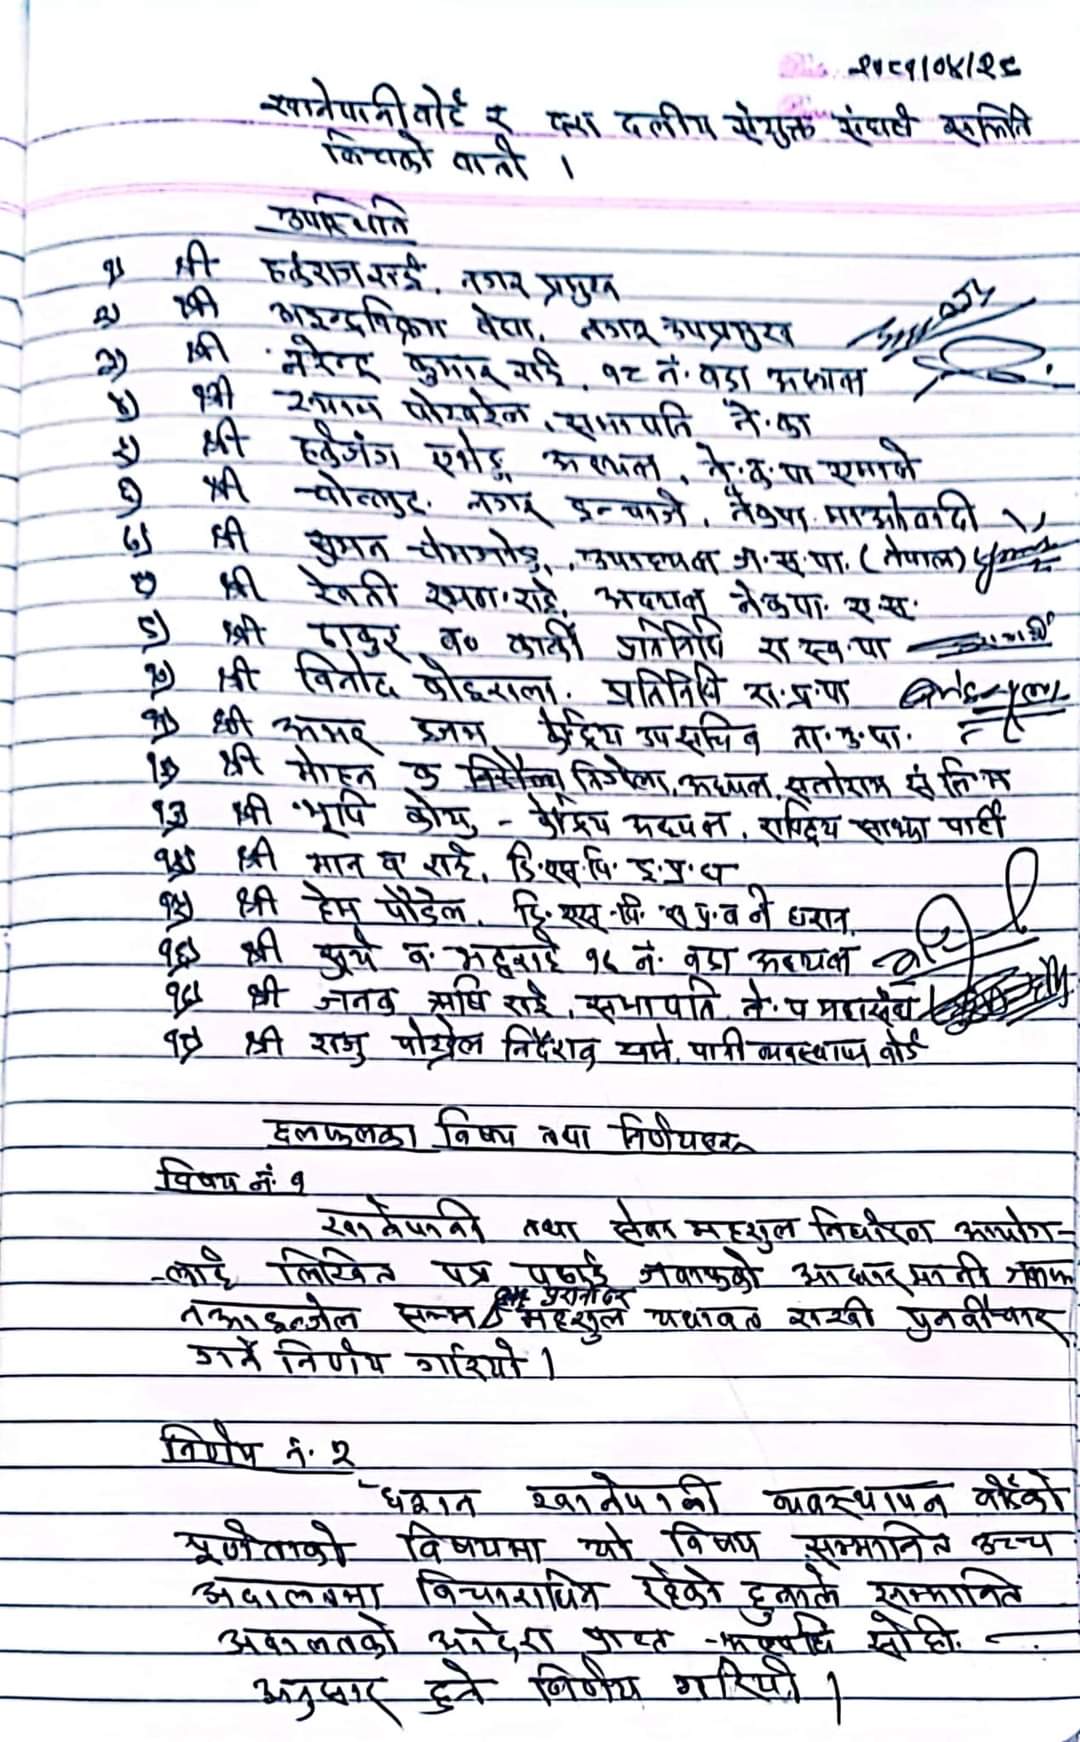 २०८१/०४/२८
खानेपानी बोर्ड र दश दलीय संयुक्त संघर्ष समिति
बिचको वार्ता ।
उपस्थिति
१) श्री हर्कराज राई, नगर प्रमुख
२) श्री आइन्द्रविक्रम बेघा, नगर उपप्रमुख
३) श्री नरेन्द्र कुमार राई, १८ नं. वडा अध्यक्ष
४) श्री श्याम पोखरेल, सभापति ने.का
५) श्री हर्कजंग अध्यक्ष, ने.क.पा एमाले
६) श्री नगर इन्चार्ज, नेकपा माओवादी
७) श्री सुमन चेमजोङ, उपाध्यक्ष ज.स.पा. (नेपाल)
८) श्री रेवती रमण राई, अध्यक्ष नेकपा. ए.स.
९) श्री ठाकुर ब० कार्की प्रतिनिधि रा स्व.पा
१०) श्री विनोद कोइराला. प्रतिनिधि रा.प्र.पा
११) श्री अमर इजम केन्द्रिय उपसचिव ना.उ.पा.
१२) श्री मोहन कु निरौला, अध्यक्ष,
१३) श्री भूपि कोयु - केन्द्रिय अध्यक्ष, राष्ट्रिय साझा पार्टी
१४) श्री मान ब राई, डि.एस.पि. इ.प्र.का
१५) श्री हेम पौडेल, डि.एस.पि. धरान,
१६) श्री सूर्य ब. भट्टराई १६ नं. वडा अध्यक्ष
१७) श्री जनक ऋषि राई, सभापति, ने.प महासंघ
१८) श्री राजु पोख्रेल निर्देशक खाने.पानी व्यवस्थापन बोर्ड
छलफलका विषय तथा निर्णयहरू
विषय नं. १
खानेपानी तथा सेवा महशुल निर्धारण आयोग-
लाई लिखित पत्र पठाई जवाफको आधार मानी जवाफ
नआइन्जेल सम्म महशुल यथावत राखी पुनर्विचार
गर्ने निर्णय गरियो ।
निर्णय नं. २
धरान खानेपानी व्यवस्थापन बोर्डको
पूर्णताको विषयमा यो विषय सम्मानित उच्च
अदालतमा विचाराधिन रहेको हुनाले सम्मानित
अदालतको आदेश प्राप्त भएपछि सोही
अनुसार हुने निर्णय गरियो ।